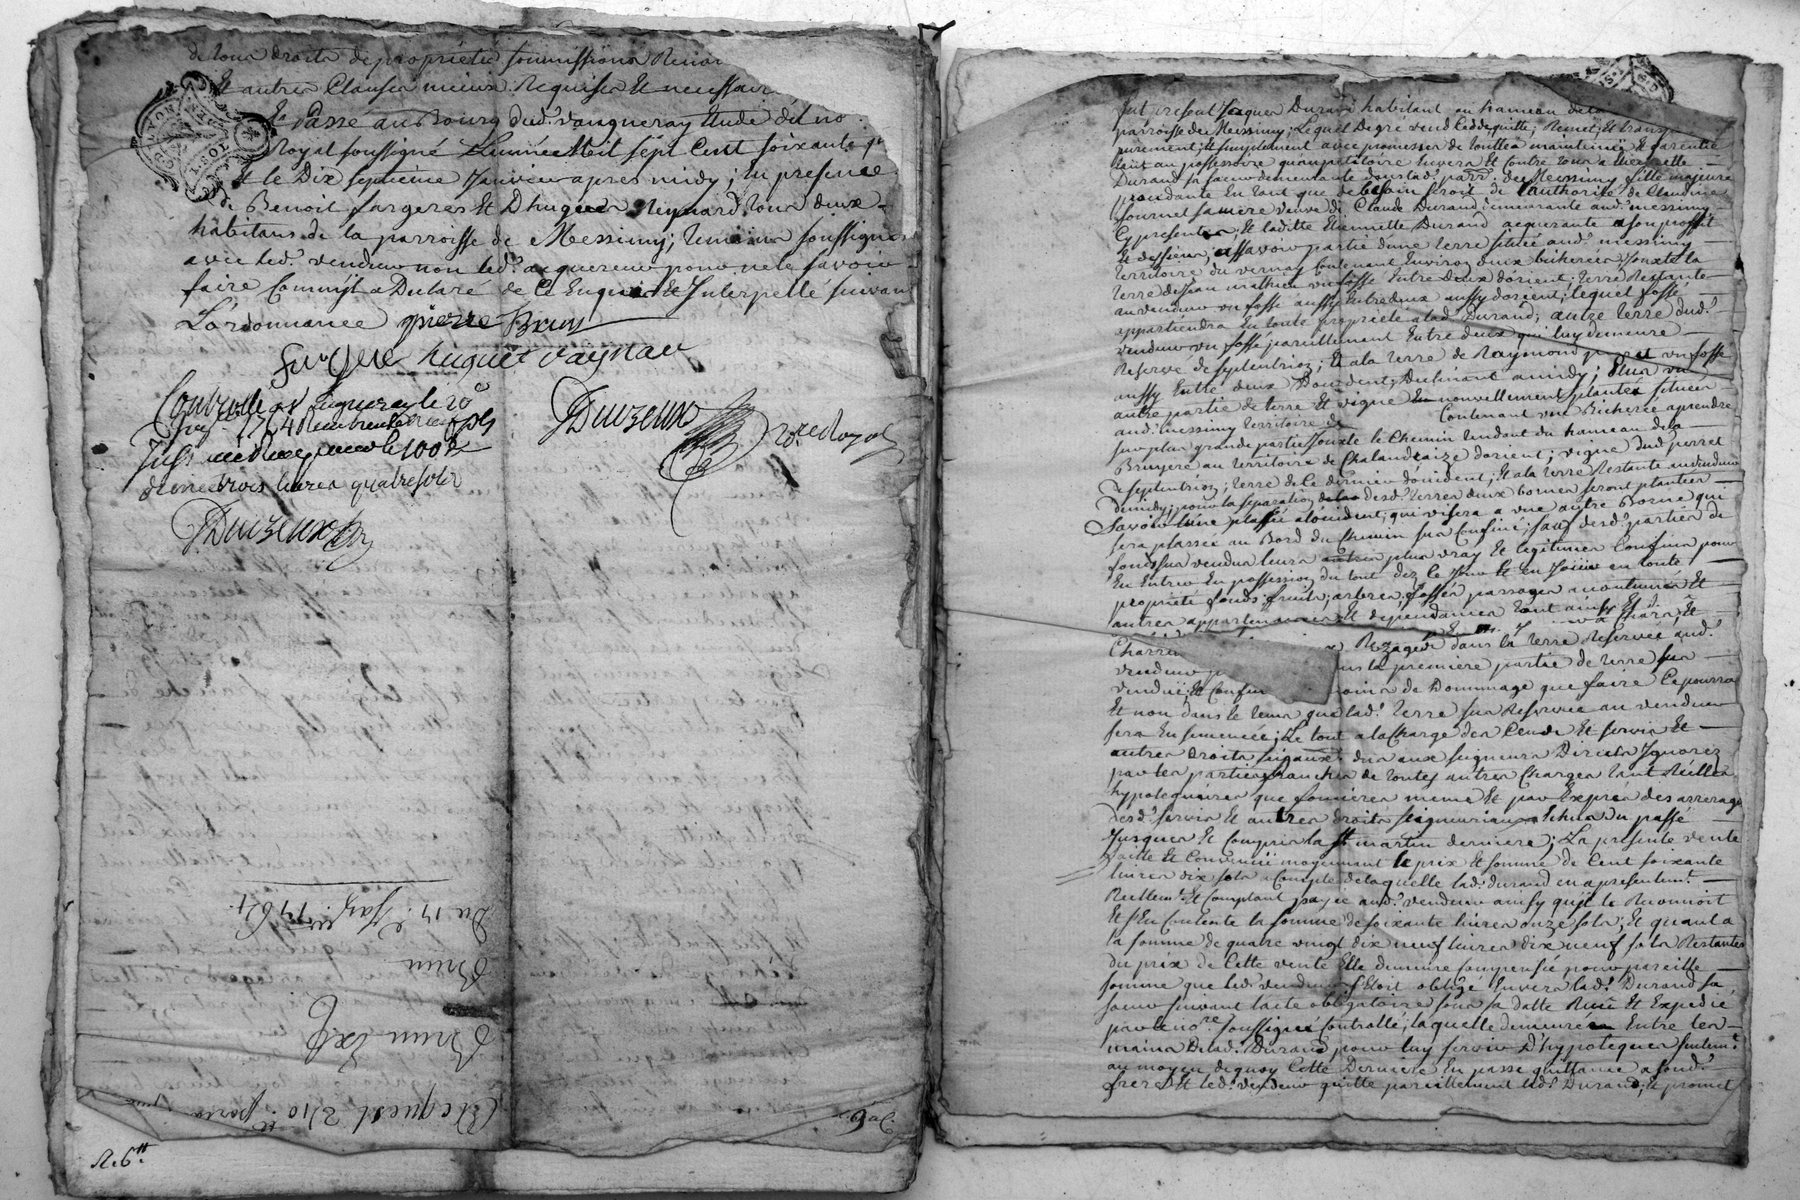 de tous droits de propriété soumissions Renon
Et autres Clauses mieux Requises Et necessair
fe Passé au Bourg dud. vaugneray Etude du no
Royal soussigné L'année Mil sept Cent soixante
Et le Dix septieme Janvier apres midy; En presence
de Benoit fargeres Et D'hugues Reynard tous deux
habitans de la parroisse de Messimy; temoins soussignes
avec led. vendeur non led. acquereur pour ne le savoir
faire Comm'il a Declaré de Ce Enquis Et Interpellé suivan
L'ordonnance pierre Brun
fargere huguet raynar
Duizeux no.re Royal
trois livres quatre sols
Duizeux
LYON
1.SOL
Du 17. Janv. 1764.
Brun
Brun
R. 6.tt
fut present Jaques Durand habitant au hameau de la
parroisse de Messimy; Lequel De gré vend Cedde quitte, Remet, Et trans
purement, Et simplement avec promesses de toutte maintenüe Et garentie
tant au possessoire qu'au petitoire Envers Et Contre tous a Etiennette
Durand sa soeur demeurante dans lad. parr. de Messimy fille majeure
procedante En tant que de besoin seroit de l'authorité de Claudine
fournel sa mere veuve de Claude Durand demeurante aud. messimy
Cy presente, Et laditte Etiennette Durand acquerante a son proffit
Et des siens, assavoir partie d'une terre située aud. messimy
territoire du vernay Contenant Environ deux bicherées Jouxte la
terre de Jean mathieu un fossé Entre deux d'orient; terre Restante
au vendeur un fossé aussy Entre deux aussy d'orient, lequel fossé
appartiendra En toute propriété a lad. Durand; autre terre dud.
vendeur un fossé pareillement Entre deux qui luy demeure
Reservé de septentrion; Et a la terre de Raymond perret un fossé
aussy Entre deux D'occident, Declinant a midy; Plus un
autre partie de terre Et vigne nouvellement plantée située
aud. messimy territoire de Contenant une Bicherée a prendre
sur plus grande partie Jouxte le Chemin tendant du hameau de la
Bruyere au territoire de Chalandraize d'orient; vigne dud. perret
de septentrion; terre de ce dernier d'occident; Et a la terre Restante au vendeur
de midy; pour la separation desd. terres deux bornes seront plantées
savoir L'une plassée a l'occident, qui visera a une autre Borne qui
sera plassée au Bord du Chemin sus Confiné; sauf desd. parties de
fonds sus vendus leurs plus vrays Et legitimes Confins pour
En Entrer En possession du tout dez Ce Jour Et En Jouir en toute
propriété fonds fruits, arbres, fossés passages accoutumés Et
autres appartenances Et dependances tout ainsy
Rezages dans la terre Reservée aud.
vendeur la premiere partie de terre sus
vendüe; Et Confin moins de Dommage que faire Ce pourra
Et non dans le tems que lad. terre sus Reservée au vendeur
sera En semencée; Le tout a la Charge des Cens Et servis Et
autres droits seigneuriaux dus aux seigneurs Directs Ignorez
par les parties, franches de toutes autres Charges tant Reelles
hypotequaires que foncieres meme Et par Exprés des arrerages
desd. servis Et autres droits seigneuriaux Echus du passé
Jusques Et Compris la st martin derniere; La presente vente
faitte Et Convenüe moyennant le prix Et somme de Cent soixante
livres dix sols a Compte de laquelle lad. durand en a presentem.t
Reellem.t Et Comptant payée aud. vendeur ainsy qu'il le Reconnoit
Et s'En Contente la somme de soixante livres onze sols; Et quant a
la somme de quatre vingt dix neuf livres dix neuf sols Restantes
du prix de Cette vente Elle demeure Compensée pour pareille
somme que led. vendeur s'Etoit obligé Envers lad. Durand sa
soeur suivant l'acte obligatoire sous sa datte Reçu Et Expedié
par le no.re soussigné Controllé; laquelle demeure Entre les
mains De lad. Durand pour luy servir D'hypoteque seulem.t
au moyen de quoy Cette Derniere En passe quittance a son d.
frere Et led. vendeur quitte pareillement lad. Durand, Et promet